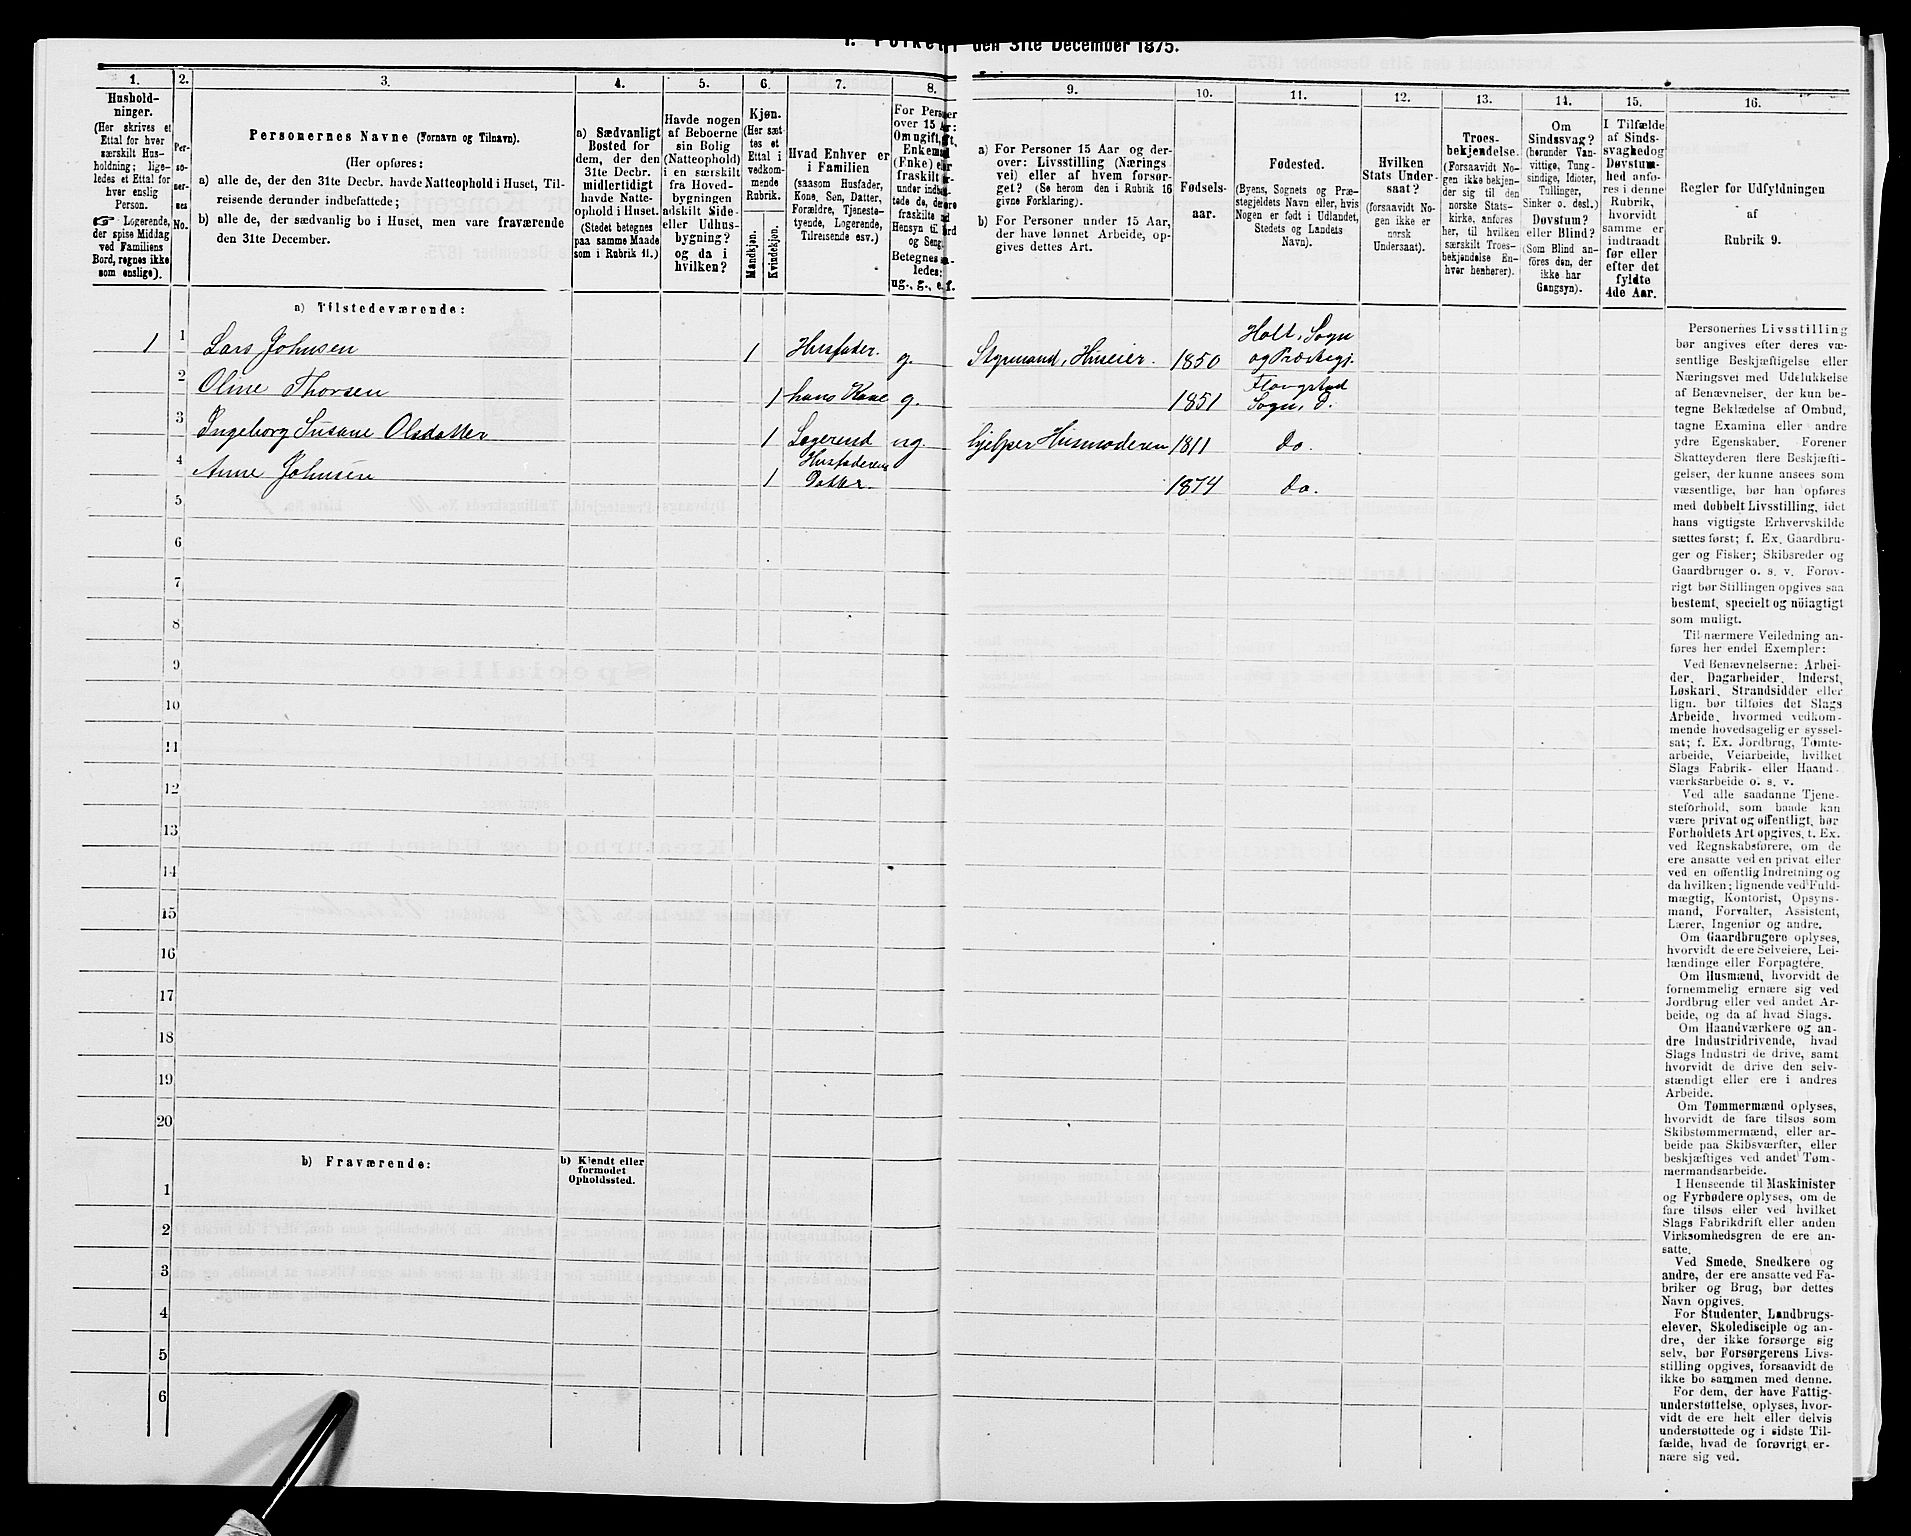 den 31te December 1875.
1. 2. 3. 4. 5. 6. 7. 8. 9. 10. 11. 12. 13. 14. 15. 16.
Hushold-
ninger.
(Her skrives et
Ettal for hver
særskilt Hus-
holdning; lige-
ledes et Ettal for
hver enslig
Person.
☞ Logerende,
der spise Middag
ved Familiens
Bord, regnes ikke
som enslige).
Per-
so-
ner-
nes
No.
Personernes Navne (Fornavn og Tilnavn).
(Her opføres:
a) alle de, der den 31te Decbr. havde Natteophold i Huset, Til-
reisende derunder indbefattede;
b) alle de, der sædvanlig bo i Huset, men vare fraværende
den 31te December.
a) Sædvanligt
Bosted for
dem, der den
31te Decbr.
midlertidigt
havde Natte-
ophold i Huset.
(Stedet betegnes
paa samme Maade
som i Rubrik 11.)
Havde nogen
af Beboerne
sin Bolig
(Natteophold)
i en særskilt
fra Hoved-
bygningen
adskilt Side-
eller Udhus-
bygning?
og da i
hvilken?
Kjøn.
(Her sæt-
tes et
Ettal i
vedkom-
mende
Rubrik.
Mandkjøn.
Kvindekjøn.
Hvad Enhver er
i Familien
(saasom Husfader,
Kone, Søn, Datter,
Forældre, Tjeneste-
tyende, Logerende,
Tilreisende osv.)
For Personer
over 15 Aar:
Omugift, gift,
Enkemand
(Enke) eller
fraskilt
Betegnes saa-
ledes:
ug., g., e. f.
a) For Personer 15 Aar og der-
over: Livsstilling (Nærings-
vei) eller af hvem forsør-
get? (Se herom den i Rubrik 16
givne Forklaring).
b) For Personer under 15 Aar,
der have lønnet Arbeide, op-
gives dettes Art.
Fødsels-
aar.
Fødested.
(Byens, Sognets og Præ-
stegjeldets Navn eller, hvis
Nogen er født i Udlandet,
Stedets og Landets
Navn).
Hvilken
Stats Under-
saat?
(forsaavidt No-
gen ikke er
norsk
Undersaat).
Troes-
bekjendelse.
(Forsaavidt No-
gen ikke bekjen-
der sig til den
norske Stats-
kirke, anføres
her, til hvilken
særskilt Troes-
bekjendelse En-
hver henhører).
Om
Sindssvag?
(herunder Van-
vittige, Tung-
sindige, Idioter,
Tullinger,
Sinker o. desl.)
Døvstum?
eller Blind?
(Som Blind an-
føres den, der
ikke har
Gangsyn).
I Tilfælde
af Sinds-
svaghed og
Døvstum-
hed anfø-
res i denne
Rubrik,
hvorvidt
samme er
indtraadt
før eller
efter det
fyldte
4de Aar.
Regler for Udfyldningen
af
Rubrik 9.
a) Tilstedeværende:
1 1 Lars Johnsen 1 Husfader. g. Styrmand, Huseier. 1850 Holt, Sogn
og Præstegj.
2 Oline Thorsen 1 hans Kone g. 1851 Flangstad
Sogn, D.
3 Ingeborg Susane Olsdatter 1 Logerend ug. hjelper Husmoderen 1811 Do.
4 Anne Johnsen 1 Husfaderens
Datter. 1874 Do.
5
6
7
8
9
10
11
12
13
14
15
16
17
18
19
20
b) Fraværende:
b) Kjendt eller
formodet
Opholdssted.
1
2
3
4
5
6
Personernes Livsstilling
bør angives efter deres væ-
sentlige Beskjæftigelse eller
Næringsvei med Udelukkelse
af Benævnelser, der kun be-
tegne Beklædelse af Ombud,
tagne Examina eller andre
ydre Egenskaber. Forener
Skatteyderen flere Beskjæfti-
gelser, der kunne ansees som
væsentlige, bør han opføres
med dobbelt Livsstilling, idet
hans vigtigste Erhvervskilde
sættes først; f. Ex. Gaardbru-
ger og Fisker; Skibsreder og
Gaardbruger o. s. v. Forøv-
rigt bør Stillingen opgives saa
bestemt, specielt og nöiagtigt
som muligt.
Til nærmere Veiledning an-
føres her endel Exempler:
Ved Benævnelserne: Arbei-
der, Dagarbeider, Inderst,
Løskarl, Strandsidder eller
lign. bør tilføies det Slags
Arbeide, hvormed vedkom-
mende hovedsagelig er syssel-
sat; f. Ex. Jordbrug, Tømte-
arbeide, Veiarbeide, hvilket
Slags Fabrik- eller Haand-
værksarbeide o. s. v.
Ved alle saadanne Tjene-
steforhold, som baade kan
være privat og offentligt, bør
Forholdets Art opgives, t. Ex.
ved Regnskabsførere, om de
ere ansatte ved en privat eller
ved en offentlig Indretning og
da hvilken; lignende ved Fuld-
mægtig, Kontorist, Opsyns-
mand, Forvalter, Assistent,
Lærer, Ingeniør og andre.
Om Gaardbrugere oplyses,
hvorvidt de ere Selveiere, Lei-
lændinge eller Forpagtere.
Om Husmænd, hvorvidt de
fornemmelig ernære sig ved
Jordbrug eller ved andet Ar-
beide, og da af hvad Slags.
Om Haandværkere og an-
dre Industridrivende, hvad
Slags Industri de drive, samt
hvorvidt de drive den selv-
stændigt eller ere i andres
Arbeide.
Om Tømmermænd oplyses,
hvorvidt de fare tilsøs som
Skibstømmermænd, eller ar-
beide paa Skibsværfter, eller
beskjæftiges ved andet Tøm-
mermandsarbeide.
I Henseende til Maskinister
og Fyrbødere oplyses, om de
fare tilsøs eller ved hvilket
Slags Fabrikdrift eller anden
Virksomhedsgren de ere an-
satte.
Ved Smede, Snedkere og
andre, der ere ansatte ved Fa-
briker og Brug, bør dettes
Navn opgives.
For Studenter, Landbrugs-
elever, Skoledisciple og an-
dre, der ikke forsørge sig
selv, bør Forsørgerens Livs-
stilling opgives, forsaavidt de
ikke bo sammen med denne.
For dem, der have Fattig-
understøttelse, oplyses, hvor-
vidt de ere helt eller delvis
understøttede og i sidste Til-
fælde, hvad de forøvrigt er-
nære sig ved.